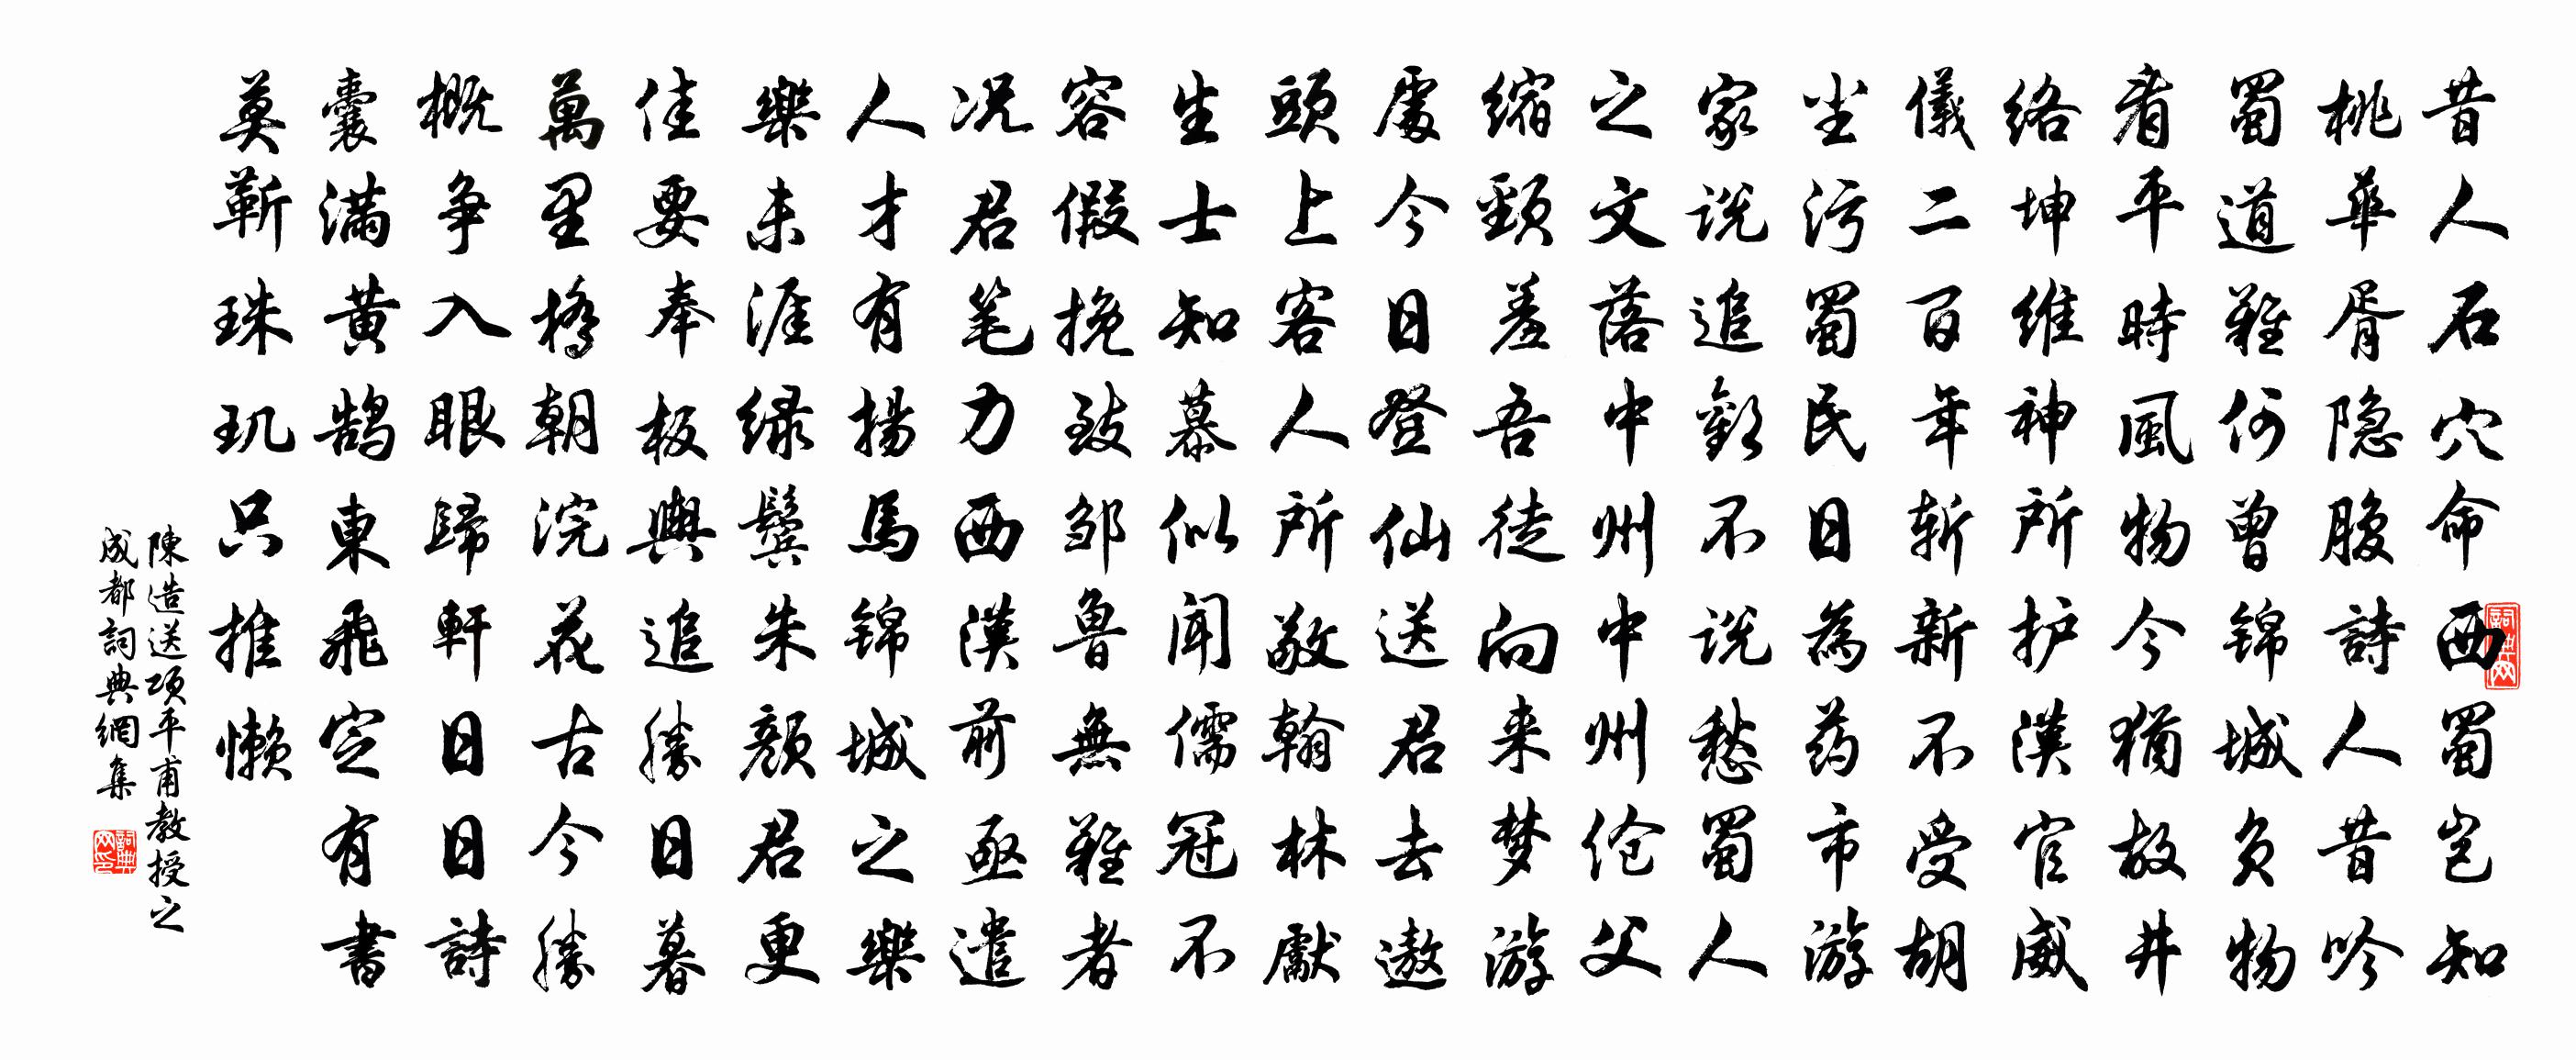 昔人石穴命西蜀岂知
桃華胥隐腹詩人昔吟
蜀道難何曾锦城负物
肴平時風物今猶故井
络坤維神所护漢官威
儀二百年斩新不受胡
尘污蜀民日為药市游
家说追歡不说愁蜀人
之文落中州中州伧父
缩頸羞吾徒向来梦游
處今日登仙送君去遨
頭上客人所敬翰林獻
生士知慕似闻儒冠不
容假挽致邹鲁無難者
况君笔力西漢前亟遣
人才有揚馬锦城之樂
樂未涯绿鬓朱颜君更
佳要奉板輿追勝日暮
萬里橋朝浣花古今勝
概争入眼歸軒日日詩
囊满黄鹄東飛定有書
莫靳珠玑只推懒
陳造送项平甫教授之
成都詞典網集